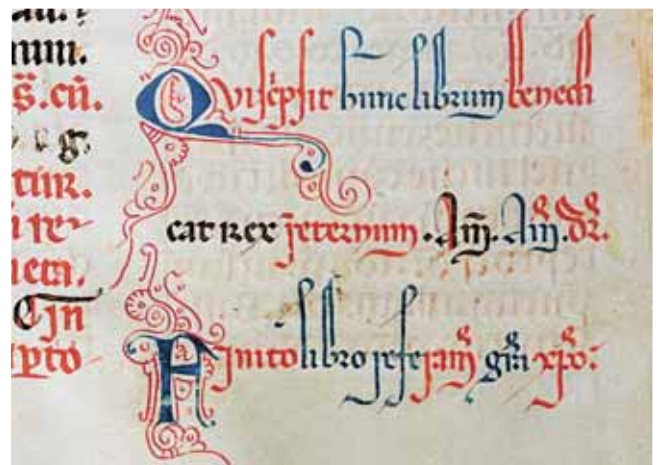 num.
s̃.cũ.
tur.
i re
ieta.
In
pto
Qui scp̃sit hunc librum benedi
cat rex ĩeternum . Am̃. Am̃. dr̃.
Finito libro referamꝰ gr̃a xp̃o: